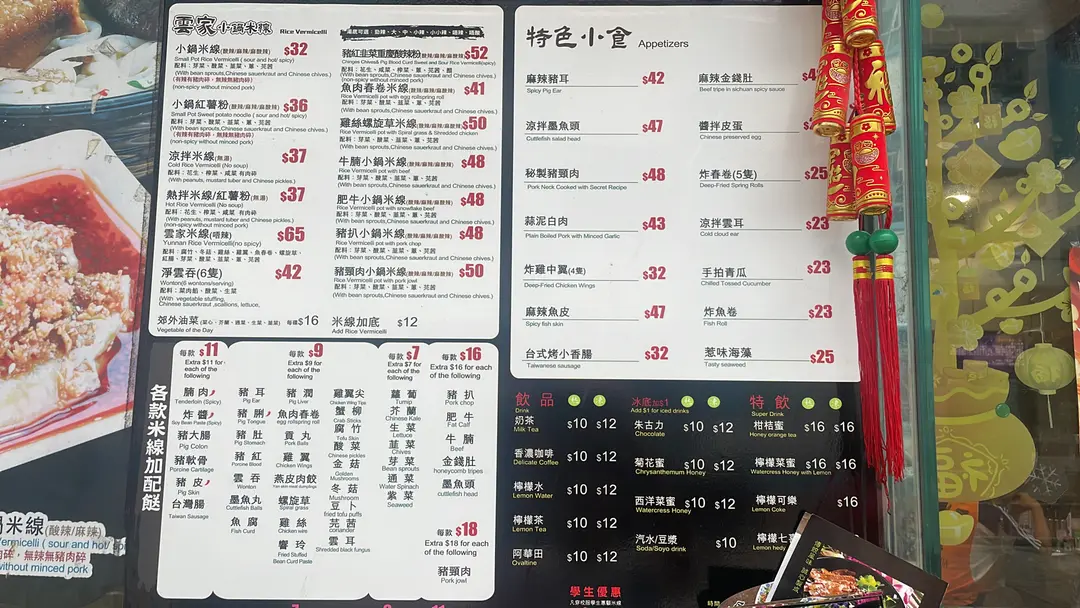 雲家小鍋米線 Rice Vermicelli
小鍋米線(酸辣/麻辣/麻酸辣) $32
Small Pot Rice Vermicelli ( sour and hot/ spicy)
配料：芽菜、酸菜、韮菜、蔥、芫茜
(With bean sprouts,Chinese sauerkraut and Chinese chives.)
(有辣有豬肉碎，無辣無豬肉碎)
(non-spicy without minced pork)
小鍋紅薯粉(酸辣/麻辣/麻酸辣) $36
Small Pot Sweet potato noodle ( sour and hot/ spicy)
配料：芽菜、酸菜、韮菜、蔥、芫茜
(With bean sprouts,Chinese sauerkraut and Chinese chives.)
(有辣有豬肉碎，無辣無豬肉碎)
(non-spicy without minced pork)
涼拌米線(無湯) $37
Cold Rice Vermicelli (No soup)
配料：花生、榨菜、咸菜 有肉碎
(With peanuts, mustard tuber and Chinese pickles.)
熱拌米線/紅薯粉(無湯) $37
Hot Rice Vermicelli (No soup)
配料：花生、榨菜、咸菜 有肉碎
(With peanuts, mustard tuber and Chinese pickles.)
(non-spicy without minced pork)
雲家米線(唔辣) $65
Yunnan Rice Vermicelli(no spicy)
淨雲吞(6隻) $42
Wonton(6 wontons/serving)
配料：菜肉餡、酸菜、生菜
(With vegetable stuffing,
Chinese sauerkraut ,scallions, lettuce,
郊外油菜(菜心、芥蘭、通菜、生菜、韮菜) 每碟$16
Vegetable of the Day
米線加底 $12
Add Rice Vermicelli
豬紅韭菜重慶酸辣粉(酸辣/麻辣/麻酸辣) $52
Chinges Chives& Pig Blood Curd Sweet and Sour Rice Vermicelli(spicy)
(With bean sprouts,Chinese sauerkraut and Chinese chives.)
(non-spicy without minced pork)
魚肉春卷米線(酸辣/麻辣/麻酸辣) $41
Rice Vermicelli pot with egg rollspring roll
配料：芽菜、酸菜、韮菜、蔥、芫茜
(With bean sprouts,Chinese sauerkraut and Chinese chives.)
雞絲螺旋草米線(酸辣/麻辣/麻酸辣) $50
Rice Vermicelli pot with Spiral grass & Shredded chicken
配料：芽菜、酸菜、韮菜、蔥、芫茜
(With bean sprouts,Chinese sauerkraut and Chinese chives.)
牛腩小鍋米線(酸辣/麻辣/麻酸辣) $48
Rice Vermicelli pot with beef
配料：芽菜、酸菜、韮菜、蔥、芫茜
(With bean sprouts,Chinese sauerkraut and Chinese chives.)
肥牛小鍋米線(酸辣/麻辣/麻酸辣) $48
Rice Vermicelli pot with snowflake beef
配料：芽菜、酸菜、韮菜、蔥、芫茜
(With bean sprouts,Chinese sauerkraut and Chinese chives.)
豬扒小鍋米線(酸辣/麻辣/麻酸辣) $48
Rice Vermicelli pot with pork chop
配料：芽菜、酸菜、韮菜、蔥、芫茜
(With bean sprouts,Chinese sauerkraut and Chinese chives.)
豬頸肉小鍋米線(酸辣/麻辣/麻酸辣) $50
Rice Vermicelli pot with pork jowl
配料：芽菜、酸菜、韮菜、蔥、芫茜
(With bean sprouts,Chinese sauerkraut and Chinese chives.)
特色小食 Appetizers
麻辣豬耳 $42
Spicy Pig Ear
涼拌墨魚頭 $47
Cuttlefish salad head
秘製豬頸肉 $48
Pork Neck Cooked with Secret Recipe
蒜泥白肉 $43
Plain Boiled Pork with Minced Garlic
炸雞中翼(4隻) $32
Deep-Fried Chicken Wings
麻辣魚皮 $47
Spicy fish skin
台式烤小香腸 $32
Taiwanese sausage
麻辣金錢肚
Beef tripe in sichuan spicy sauce
醬拌皮蛋
Chinese preserved egg
炸春卷(5隻) $25
Deep-Fried Spring Rolls
涼拌雲耳 $23
Cold cloud ear
手拍青瓜 $23
Chilled Tossed Cucumber
炸魚卷 $23
Fish Roll
惹味海藻 $25
Tasty seaweed
各款米線加配餸
每款 $11
Extra $11 for
each of the
following
腩肉
Tenderloin (Spicy)
炸醬
Soy Bean Paste (Spicy)
豬大腸
Pig Colon
豬軟骨
Porcine Cartilage
豬皮
Pig Skin
台灣腸
Taiwan Sausage
每款 $9
Extra $9 for
each of the
following
豬耳
Pig Ear
豬脷
Pig Tongue
豬肚
Pig Stomach
豬紅
Porcine Blood
雲吞
Wonton
墨魚丸
Cuttlefish Balls
魚腐
Fish Curd
豬潤
Pig Liver
魚肉春卷
egg rollspring roll
貢丸
Pork Balls
雞翼
Chicken Wings
燕皮肉餃
螺旋草
Spiral grass
雞絲
Chicken wire
響玲
Fried Stuffed
Bean Curd Paste
雞翼尖
Chicken Wing Tips
蟹柳
Crab Sticks
腐竹
Tofu Skin
酸菜
Chinese pickles
金菇
Golden
Mushrooms
冬菇
Mushroom
豆卜
fried tofu puffs
芫茜
coriander
雲耳
Shredded black fungus
每款 $7
Extra $7 for
each of the
following
蘿蔔
Turnip
芥蘭
Chinese Kale
生菜
Lettuce
韮菜
Chives
芽菜
Bean sprouts
通菜
Water Spinach
紫菜
Seaweed
每款 $16
Extra $16 for each
of the following
豬扒
Pork chop
肥牛
Fat Calf
牛腩
Beef
金錢肚
honeycomb tripes
墨魚頭
cuttlefish head
每款 $18
Extra $18 for each
of the following
豬頸肉
Pork jowl
飲品 熱 凍
Drink
奶茶 $10 $12
Milk Tea
香濃咖啡 $10 $12
Delicate Coffee
檸檬水 $10 $12
Lemon Water
檸檬茶 $10 $12
Lemon Tea
阿華田 $10 $12
Ovaltine
冰底加$1
Add $1 for iced drinks
朱古力 $10 $12
Chocolate
菊花蜜 $10 $12
Chrysanthemum Honey
西洋菜蜜 $10 $12
Watercress Honey
汽水/豆漿 $10
Soda/Soyo drink
特飲
Super Drink
柑桔蜜 $16 $16
Honey orange tea
檸檬菜蜜 $16 $16
Watercress Honey with Lemon
檸檬可樂 $16
Lemon Coke
檸檬七
Lemon
學生優惠
時間
米線(酸辣/麻辣)
ermicelli ( sour and hot/ sp
肉碎，無辣無豬肉碎)
without minced pork)
福